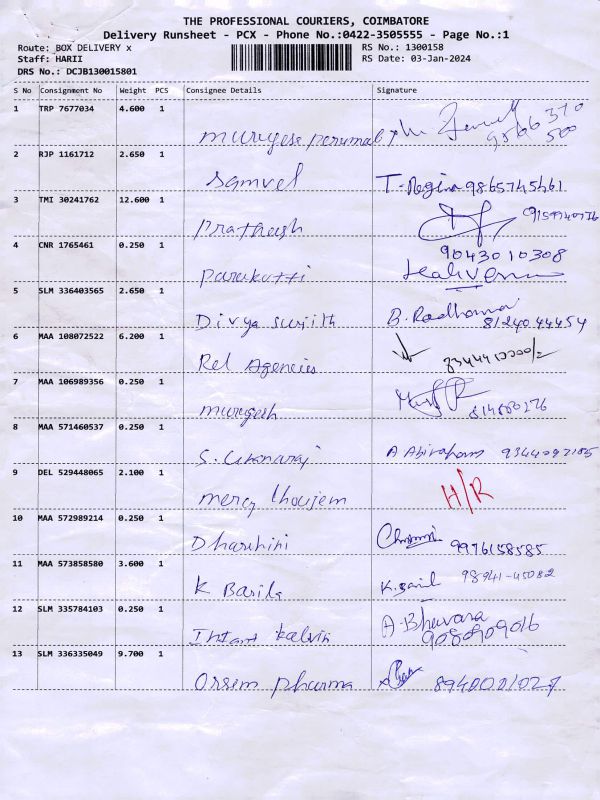 THE PROFESSIONAL COURIERS, COIMBATORE
Delivery Runsheet - PCX - Phone No.:0422-3505555 - Page No.:1
Route: BOX DELIVERY x RS No.: 1300158
Staff: HARII RS Date: 03-Jan-2024
DRS No.: DCJB130015801
S No Consignment No Weight PCS Consignee Details Signature
1 TRP 7677034 4.600 1
murugesa perumal
2 RJP 1161712 2.650 1
Samvel T-Regina 9865745461
3 TMI 30241762 12.600 1
Prathesh
4 CNR 1765461 0.250 1 9043010308
Parakatti
5 SLM 336403565 2.650 1
Divya surjith B. Radhama 8124044454
6 MAA 108072522 6.200 1
Rel Agencies
7 MAA 106989356 0.250 1
murugesh
8 MAA 571460537 0.250 1
S. A Abirahams
9 DEL 529448065 2.100 1
mercy H/R
10 MAA 572989214 0.250 1
Dharshini 9976158585
11 MAA 573858580 3.600 1
K Basila 98941-45082
12 SLM 335784103 0.250 1
Instant kalvin A. Bhuvana
9080909016
13 SLM 336335049 9.700 1
Orsem pharma 8940001027